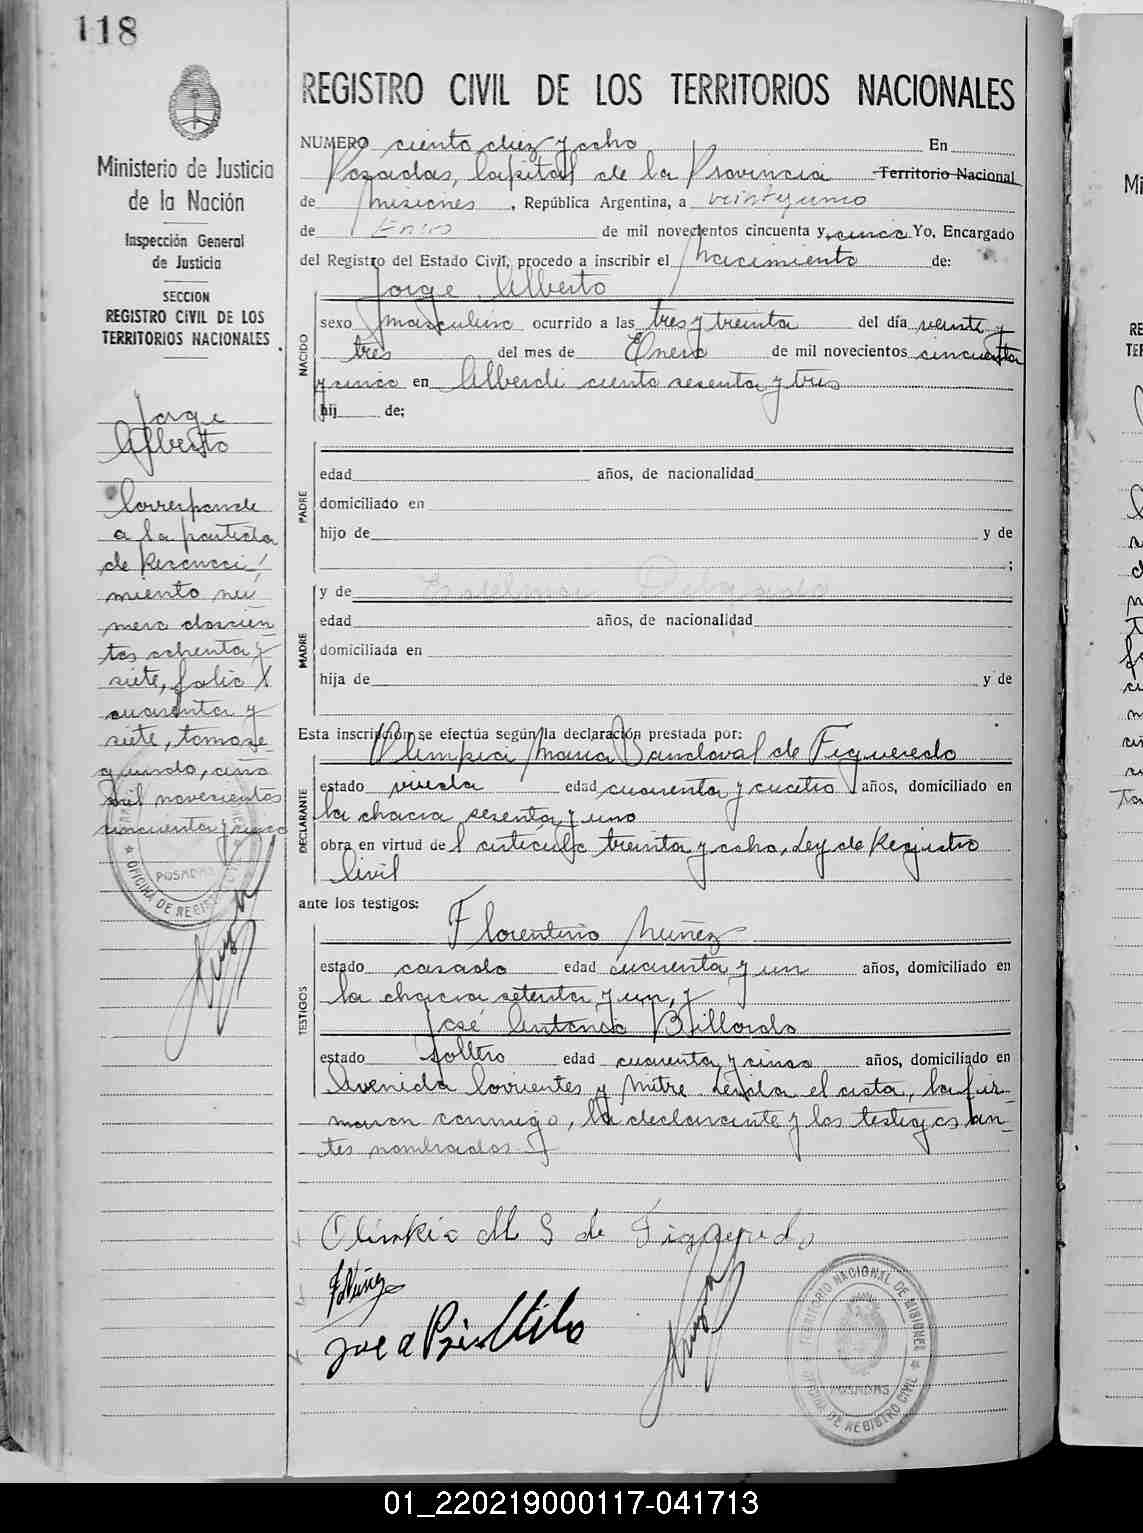 118
Ministerio de Justicia
de la Nación
Inspección General
de Justicia
SECCION
REGISTRO CIVIL DE LOS
TERRITORIOS NACIONALES
Jorge
Alberto
Corresponde
a la partida
de Reconoci-
miento nú
mero doscien
tos ochenta y
siete, folio
cuarenta y
siete, tomo se
gundo, año
mil novecientos
cincuenta y cinco
OFICINA DE REGISTRO
POSADAS
REGISTRO CIVIL DE LOS TERRITORIOS NACIONALES
NUMERO ciento diez y ocho En
Posadas, Capital de la Provincia Territorio Nacional
de Misiones, República Argentina, a veintiyuno
de Enero de mil novecientos cincuenta y cinco Yo, Encargado
del Registro del Estado Civil, procedo a inscribir el Nacimiento de:
Jorge Alberto
NACIDO
sexo masculino ocurrido a las tres y treinta del día veinte y
tres del mes de Enero de mil novecientos cincuenta
y cinco en Alberdi ciento sesenta y tres
hij de:
PADRE
edad años, de nacionalidad
domiciliado en
hijo de y de
;
y de Delgado
MADRE
edad años, de nacionalidad
domiciliada en
hija de y de
Esta inscripción se efectúa según la declaración prestada por:
Olimpia Maria Sandoval de Figueredo
DECLARANTE
estado viuda edad cuarenta y cuatro años, domiciliado en
la chacra sesenta y uno
obra en virtud del artículo treinta y ocho, Ley de Registro
Civil
ante los testigos:
Florentino Nuñez
TESTIGOS
estado casado edad cuarenta y un años, domiciliado en
la chacra setenta y un, y
José Antonio
estado soltero edad cuarenta y cinco años, domiciliado en
Avenida Corrientes y Mitre. Leída el acta, la fir-
maron conmigo, la declarante y los testigos an-
tes nombrados.
Olimpia M S de Figueredo
F Nuñez
Jose A
TERRITORIO NACIONAL DE MISIONES
POSADAS
OFICINA DE REGISTRO CIVIL
01_220219000117-041713